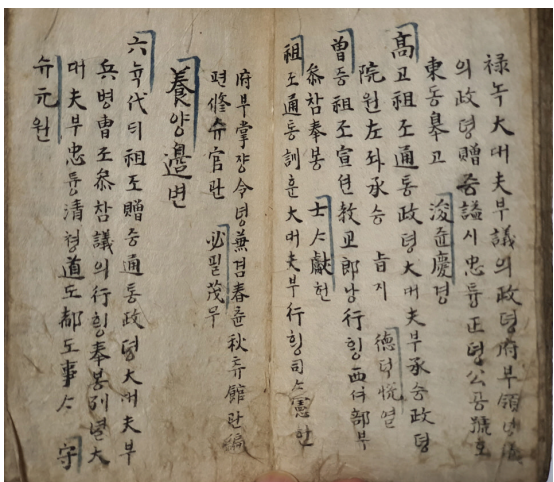 祿녹大대夫부議의政뎡府부領녕議
의政뎡贈증謚시忠튱正뎡公공號호
東동皐고 浚쥰慶경
高고祖조通통政뎡大대夫부承승政뎡
院원左좌承승旨지 德덕悅열
曾증祖조宣션敎교郎낭行힝西셔部부
叅참奉봉 士ᄉ獻헌
祖조通통訓훈大대夫부行힝司ᄉ憲헌
府부掌쟝令녕兼겸春츈秋츄館관編
편修슈官관 必필茂무
養양邊변
六뉵代ᄃᆡ祖조贈증通통政뎡大대夫부
兵병曺조叅참議의行힝奉봉列녈大
대夫부忠튱清청道도都도事ᄉ 守
슈元원